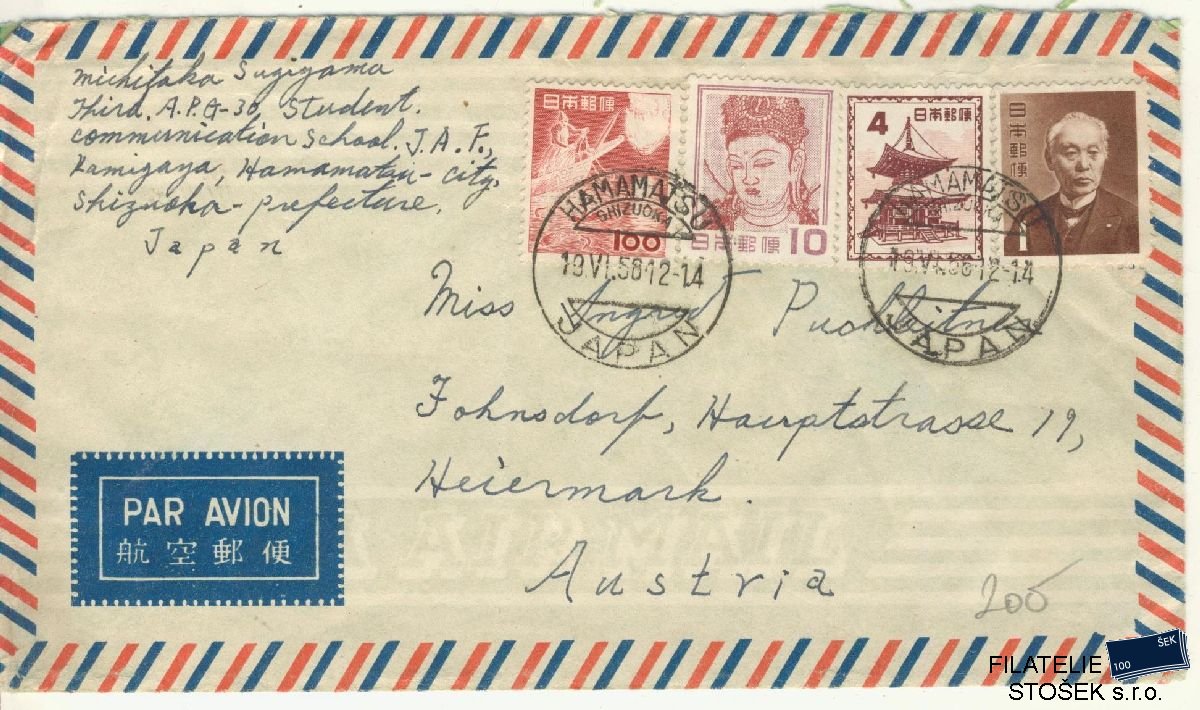 Michitaka Sugiyama
Third. A.P.G-30, Student.
communication School. J.A.F.,
Kamigaya, Hamamatsu-city,
Shizuoka-prefecture,
Japan
日本郵便
100
日本郵便 10
4 日本郵便
日本郵便
1
HAMAMATSU
SHIZUOKA
19.VI.56.12-14
JAPAN
HAMAMATSU
19.VI.56.12-14
JAPAN
Miss Ingrid
Fohnsdorf, Hauptstrasse 19,
Heiermark.
Austria
PAR AVION
航空郵便
200
FILATELIE
STOŠEK s.r.o.
100 ŠEK